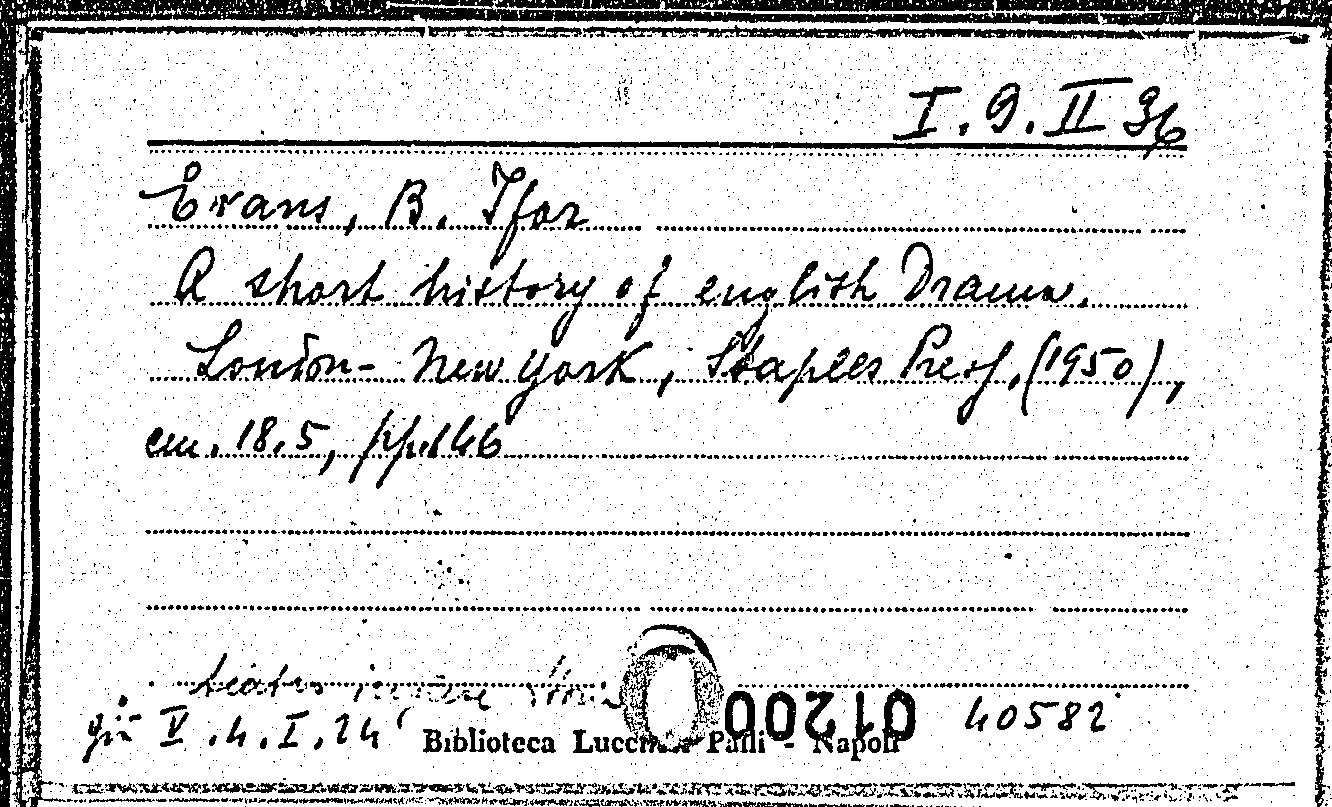 I.9.II 36
Evans, B. Ifor
A short history of english Drama.
London - New York, Staples Press, (1950),
cm. 18.5, pp. 146
teatro inglese Storia
già V.4.I.24
Biblioteca Lucchesi Palli - Napoli
01200
40582